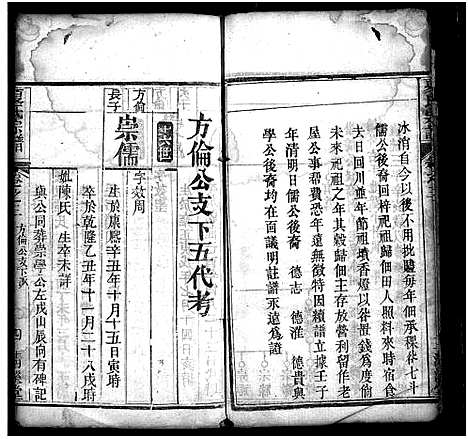 冰消自今以後不用批驗每年佃承稞谷七斗
儒公後裔回杞祖祭掃佃田人照料來時宿食
去日回川並年節祖墳香燈以谷當錢為度倘
未來祀祖之年其穀歸佃主存放營利留作老
屋公事幫費恐年遠無徵特因續譜立據壬子
年清明日儒公後裔 德志 德淮 德貴與
學公後裔均在面議明註譜永遠為證
方倫公支下五代考
方倫
長子
崇儒
字效周
生於康熙辛丑年十月十五日寅時
卒於乾隆乙丑年十一月二十八戌時
妣陳氏 生卒未詳
與公同葬崇學公左戌山辰向有碑記
方倫公支下派
四